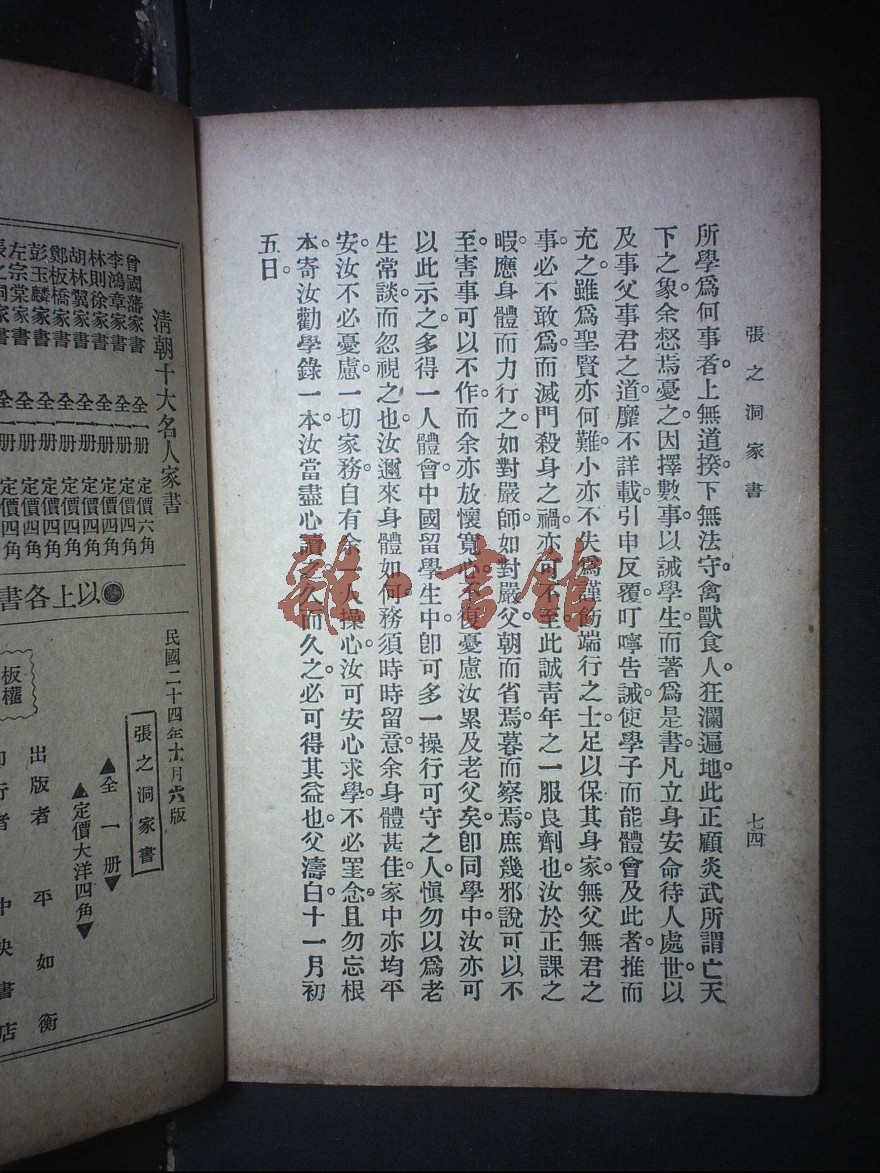 張之洞家書
七四
所學爲何事者。上無道揆。下無法守。禽獸食人。狂瀾遍地。此正顧炎武所謂亡天
下之象。余惄焉憂之。因擇數事。以誡學生。而著爲是書。凡立身安命待人處世。以
及事父事君之道。靡不詳載。引申反覆。叮嚀告誡。使學子而能體會及此者。推而
充之。雖爲聖賢亦何難。小亦不失爲謹飭端行之士。足以保其身家。無父無君之
事。必不敢爲。而滅門殺身之禍。亦可不至。此誠靑年之一服良劑也。汝於正課之
暇。應身體而力行之。如對嚴師。如對嚴父。朝而省焉。暮而察焉。庶幾邪說可以不
至。害事可以不作。而余亦放懷寬心。不復憂慮汝累及老父矣。卽同學中。汝亦可
以此示之。多得一人體會。中國留學生中。卽可多一操行可守之人。愼勿以爲老
生常談。而忽視之也。汝邇來身體如何。務須時時留意。余身體甚佳。家中亦均平
安。汝不必憂慮。一切家務。自有余一人操心。汝可安心求學。不必罣念。且勿忘根
本。寄汝勸學錄一本。汝當盡心讀之。久而久之。必可得其益也。父濤白。十一月初
五日。
雜·書館
清朝十大名人家書
曾國藩家書 全一册 定價六角
李鴻章家書 全一册 定價四角
林則徐家書 全一册 定價四角
胡林翼家書 全一册 定價四角
鄭板橋家書 全一册 定價四角
彭玉麟家書 全一册 定價四角
左宗棠家書 全一册 定價四角
張之洞家書
以上各書
民國二十四年十月六版
張之洞家書
▲全一册▼
▲定價大洋四角▼
板權
出版者 平如衡
印行者 中央書店